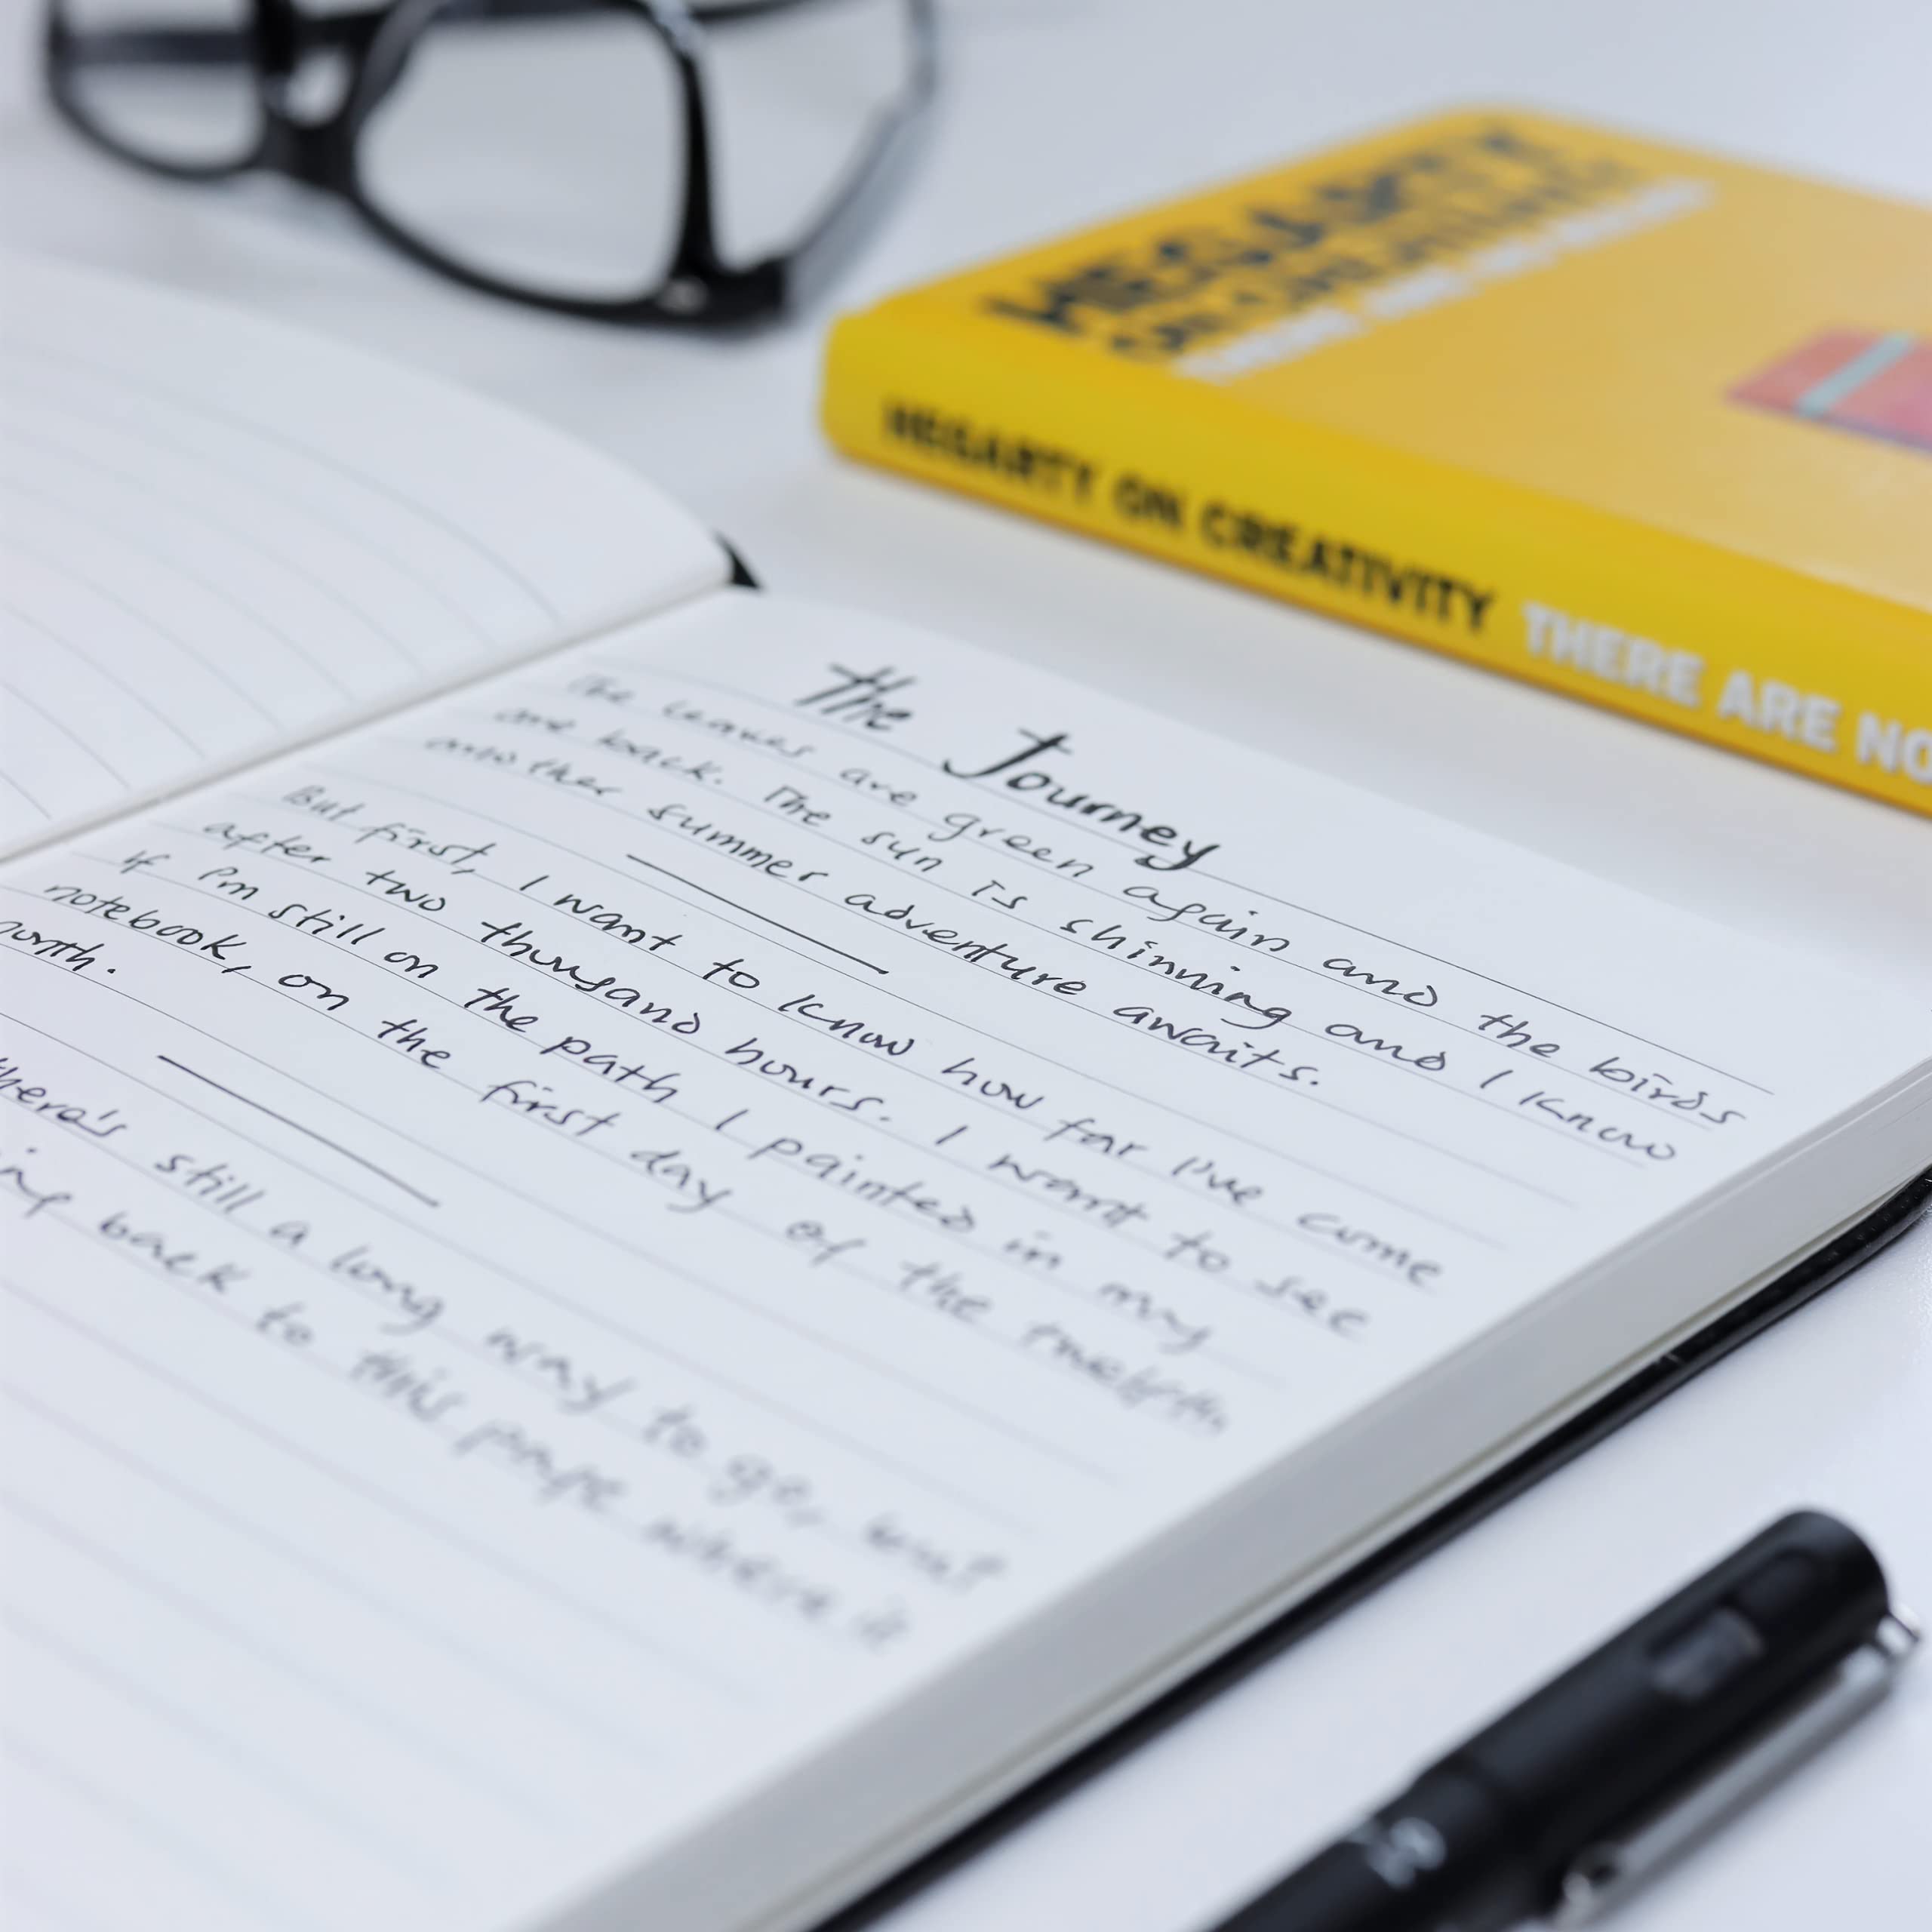 HEGARTY
ON CREATIVITY
THERE ARE NO RULES
HEGARTY ON CREATIVITY THERE ARE NO
the Journey
The leaves are green again and the birds
are back. The sun is shinning and I know
another summer adventure awaits.
But first, I want to know how far I've come
after two thousand hours. I want to see
if I'm still on the path I painted in my
notebook, on the first day of the twelfth
month.
there's still a long way to go, but
back to this page where it